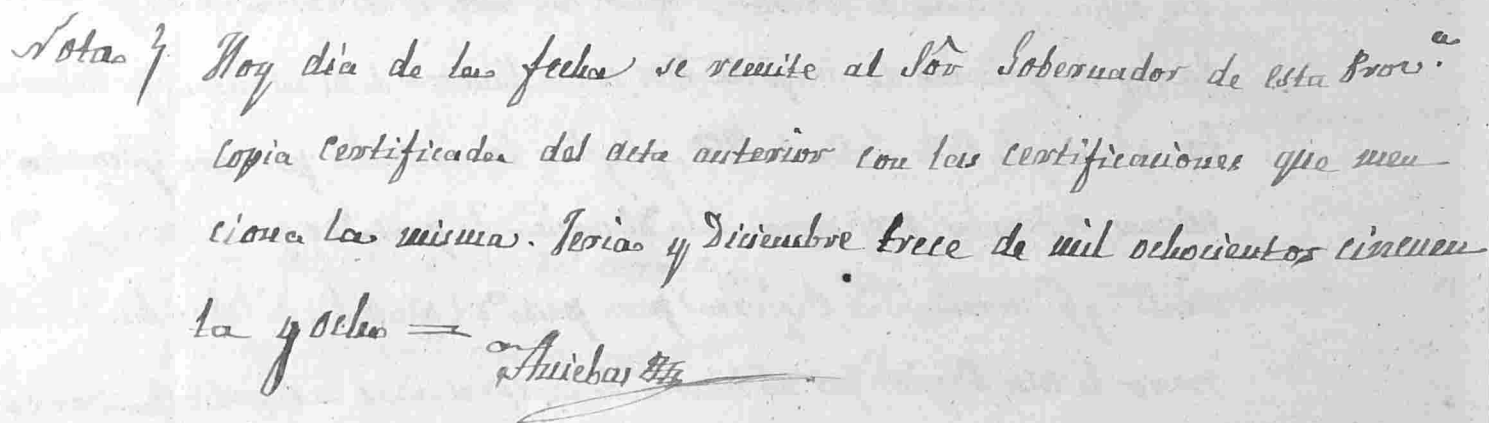 Nota} Hoy dia de la fecha se remite al Sôr Gobernador de esta Prov.ª
copia certificada del acta anterior con las certificaciones que men
ciona la misma. Feria y Diciembre trece de mil ochocientos cincuen
ta y ocho =